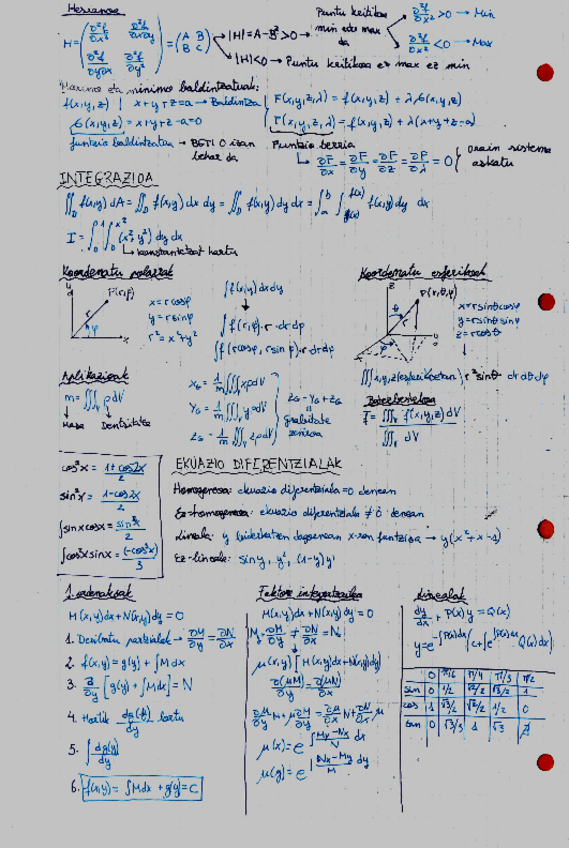 Hessianoa
H = (∂²f/∂x² ∂²f/∂x∂y ; ∂²f/∂y∂x ∂²f/∂y²) = (A B ; B C)
|H| = A-B²>0 → Puntu kritikoa min edo max da
∂²f/∂x² >0 → Min
∂²f/∂x² <0 → Max
|H|<0 → Puntu kritikoa ez max ez min
Maximo eta minimo baldintzatuak:
f(x,y,z) | x+y+z=a → Baldintza
F(x,y,z,λ) = f(x,y,z) + λ G(x,y,z)
G(x,y,z) = x+y+z-a=0
F(x,y,z,λ) = f(x,y,z) + λ(x+y+z-a)
funtzio baldintzatua → BETI 0 izan behar da
Funtzio berria
∂F/∂x = ∂F/∂y = ∂F/∂z = ∂F/∂λ = 0 { Orain sistema askatu
INTEGRAZIOA
∬_D f(x,y) dA = ∬_D f(x,y) dx dy = ∬_D f(x,y) dy dx = ∫_a^b ∫_g(x)^f(x) f(x,y) dy dx
I = ∫_0^1 ∫_0^x² (x²,y²) dy dx
konstantetzat hartu
Koordenatu polarrak
y
P(r,φ)
r
φ
x
x = r cosφ
y = r sinφ
r² = x²+y²
∫f(x,y) dx dy
∫f(r,φ)·r·dr dφ
∫f(r cosφ, r sinφ)·r·dr dφ
Koordenatu esferikoak
z
P(r,θ,φ)
θ
r
y
φ
x
x=r sinθ cosφ
y=r sinθ sinφ
z=r cosθ
∭(x,y,z(esferikoetan)) r² sinθ dr dθ dφ
Aplikazioak
m = ∭_V ρ dV
Masa
Dentsitatea
x_G = 1/m ∭_V xρdV
y_G = 1/m ∭_V yρdV
z_G = 1/m ∭_V zρdV
x_G - y_G + z_G
=
grabitate zentroa
Batezbestekoa
f̄ = ∭_V f(x,y,z) dV / ∭_V dV
cos²x = 1+cos2x / 2
sin²x = 1-cos2x / 2
∫sinx cosx = sin²x / 2
∫cos²x sinx = (-cos³x) / 3
EKUAZIO DIFERENTZIALAK
Homogeneoa: ekuazio diferentziala = 0 denean
Ez-homogeneoa: ekuazio diferentziala ≠ 0 denean
Lineala: y biderkatzen dagoenean x-ren funtzioa → y(x²+x-1)
Ez-lineala: sin y, y², (1-y)y'
1. ordenakoak
M(x,y)dx+N(x,y)dy=0
1. Deribatu partzialak → ∂M/∂y = ∂N/∂x
2. f(x,y) = g(y) + ∫M dx
3. ∂/∂y [g(y) + ∫M dx] = N
4. Hortik dg(y)/dy lortu
5. ∫ dg(y)/dy
6. f(x,y) = ∫M dx + g(y) = C
Faktore integratzailea
M(x,y)dx+N(x,y)dy=0
M_y ∂M/∂y ≠ ∂N/∂x = N_x
μ(x,y) [M(x,y)dx+N(x,y)dy]
∂(μM)/∂y = ∂(μN)/∂x
∂μ/∂y M + μ ∂M/∂y = ∂μ/∂x N + ∂N/∂x μ
μ(x) = e^∫ (My-Nx)/N dx
μ(y) = e^∫ (Nx-My)/M dy
Linealak
dy/dx + P(x)y = Q(x)
y = e^-∫P(x)dx (C + ∫e^∫P(x)dx Q(x) dx)
0 π/6 π/4 π/3 π/2
sin 0 1/2 √2/2 √3/2 1
cos 1 √3/2 √2/2 1/2 0
tan 0 √3/3 1 √3 ∄